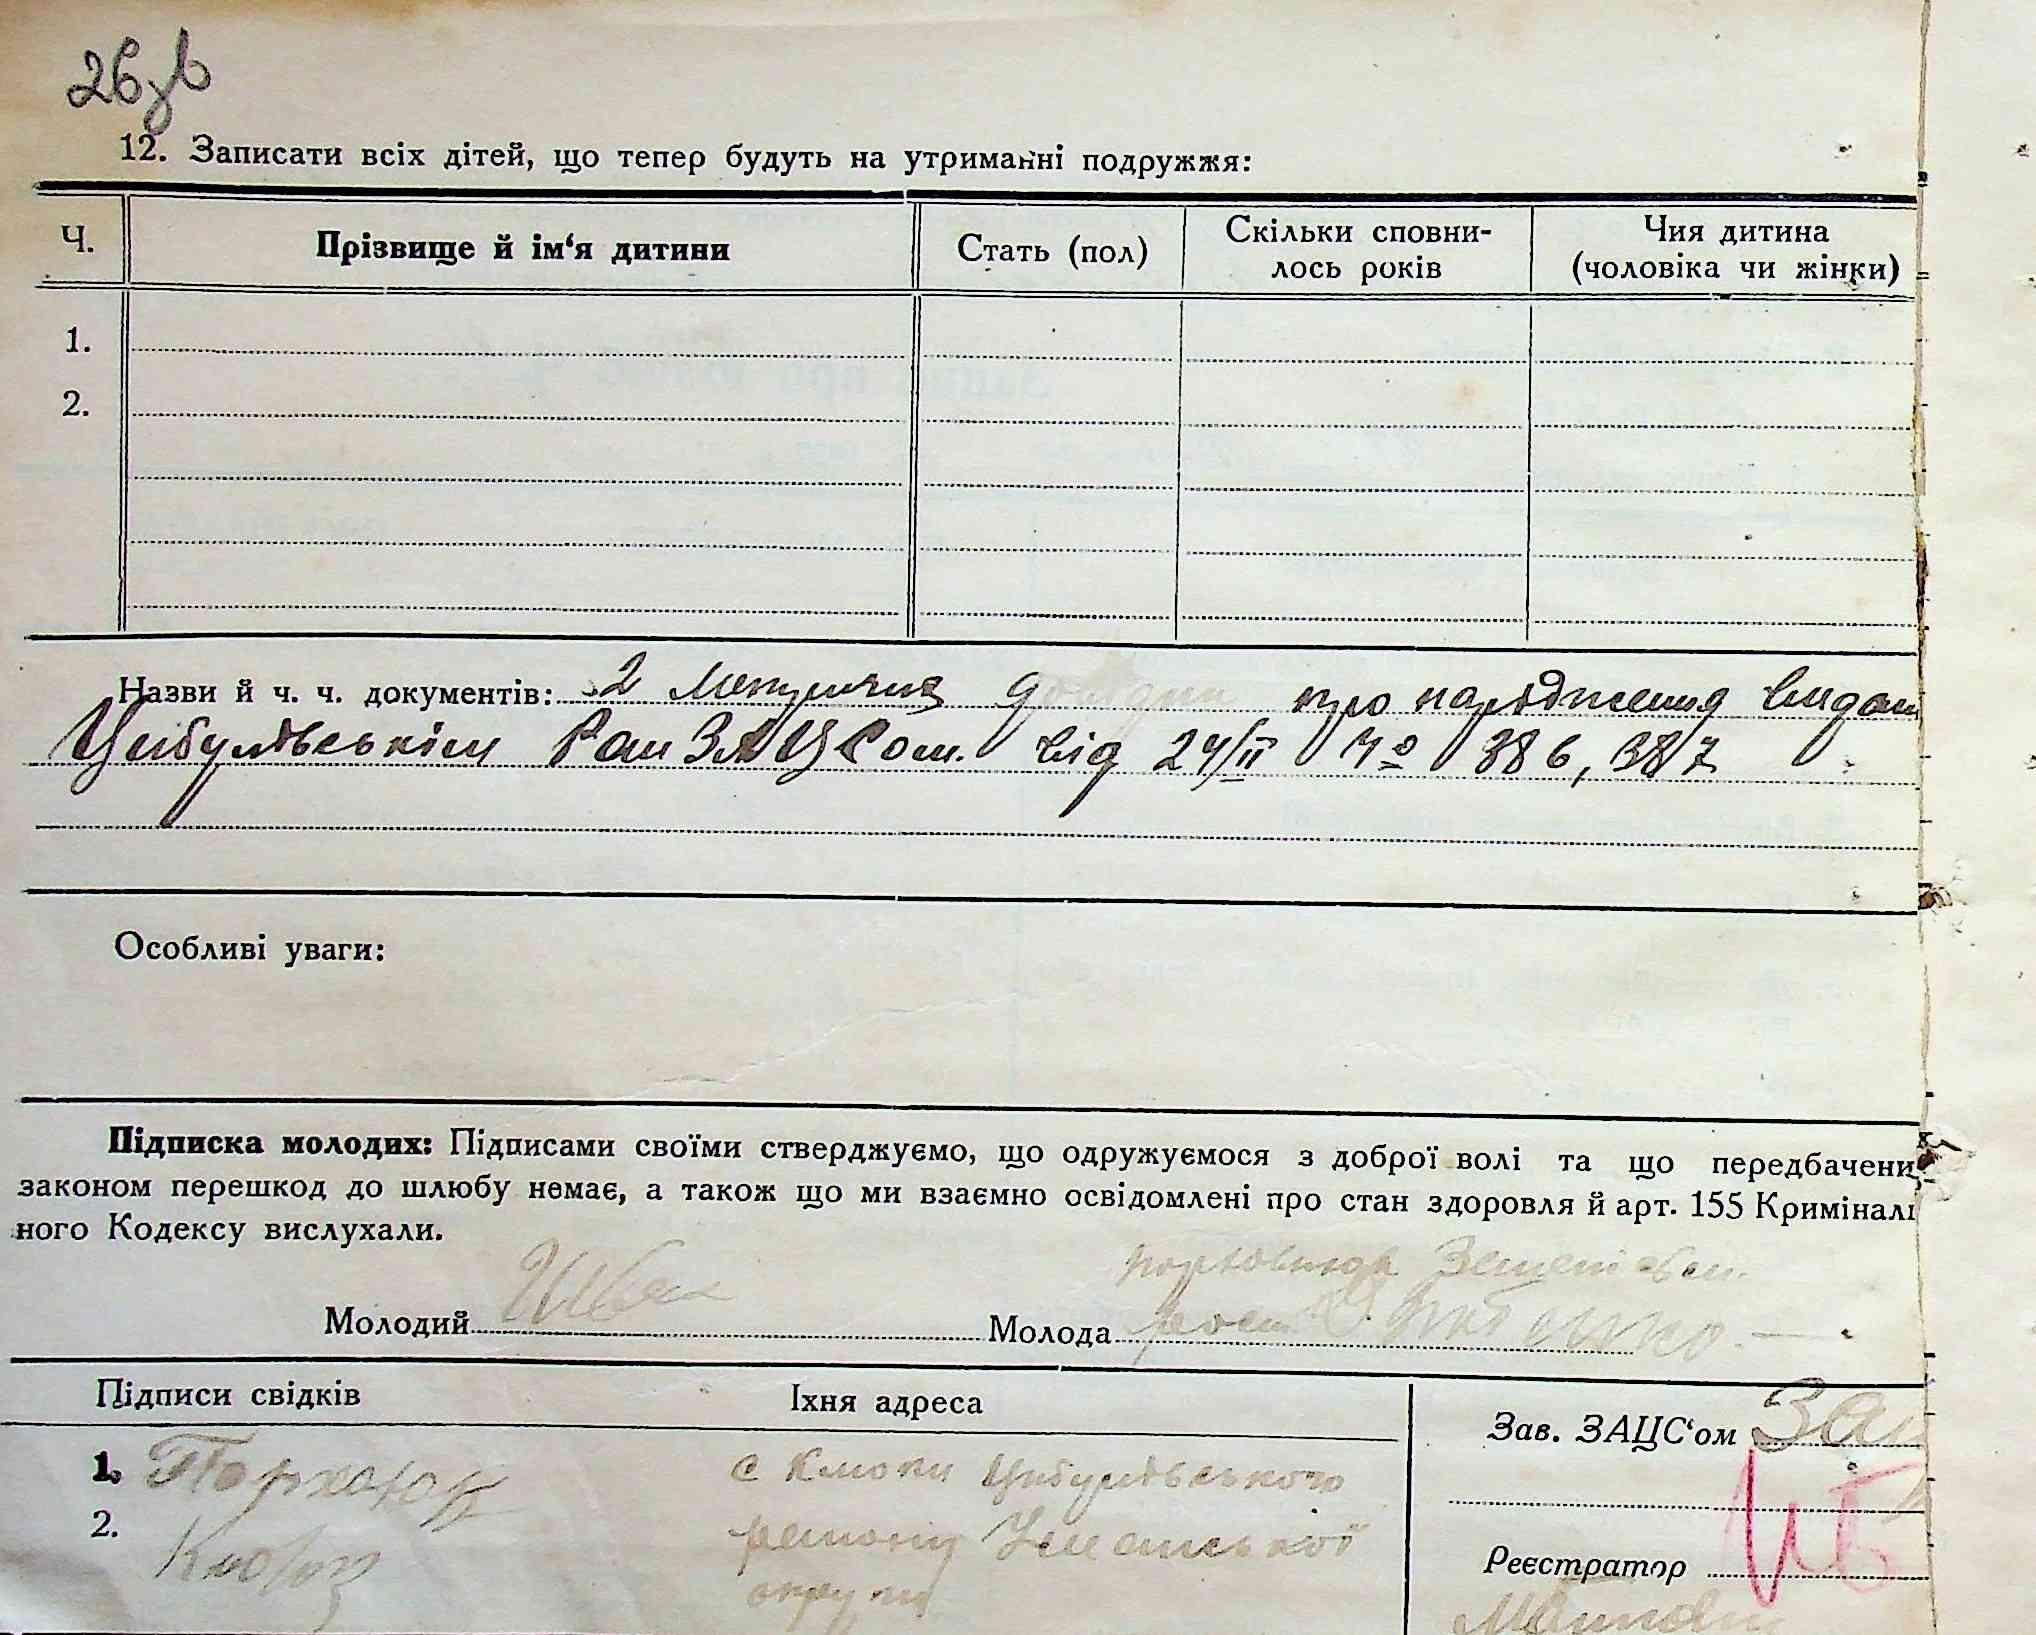 26зв
12. Записати всіх дітей, що тепер будуть на утриманні подружжя:
Ч. Прізвище й ім‘я дитини Стать (пол) Скільки сповни-лось років Чия дитина (чоловіка чи жінки)
1.
2.
Назви й ч. ч. документів: 2 про народження видан
Цибулівським РайЗАЦСом. від 24/II № 386, 387
Особливі уваги:
Підписка молодих: Підписами своїми стверджуємо, що одружуємося з доброї волі та що передбачени
законом перешкод до шлюбу немає, а також що ми взаємно освідомлені про стан здоровля й арт. 155 Криміналі
ного Кодексу вислухали.
Молодий Швец Молода
Підписи свідків Їхня адреса Зав. ЗАЦС‘ом
1. с Клюки Цибулівського
2. району Уманської
округи
Реєстратор